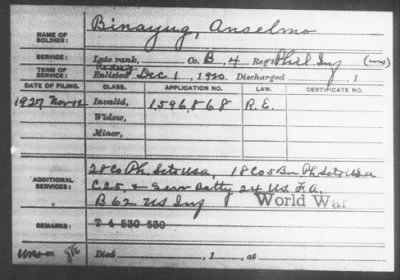 NAME OF SOLDIER: Binayug, Anselmo
SERVICE: Late rank, Co. B, 4 Reg't Phil Inf
TERM OF SERVICE: Enlisted Dec 1, 1920 Discharged , 1
DATE OF FILING. CLASS. APPLICATION NO. LAW. CERTIFICATE NO.
1927 Nov 12 Invalid, 1,596,868 R.E.
Widow,
Minor,
ADDITIONAL SERVICES: 28 Co Ph. Scts USA, 18 Co 5 Bn Ph. Scts USA
C 25, & Serv Batty 24 US F.A.
B 62 US Inf World War
REMARKS: T-4-530-630
Died , 1 , at